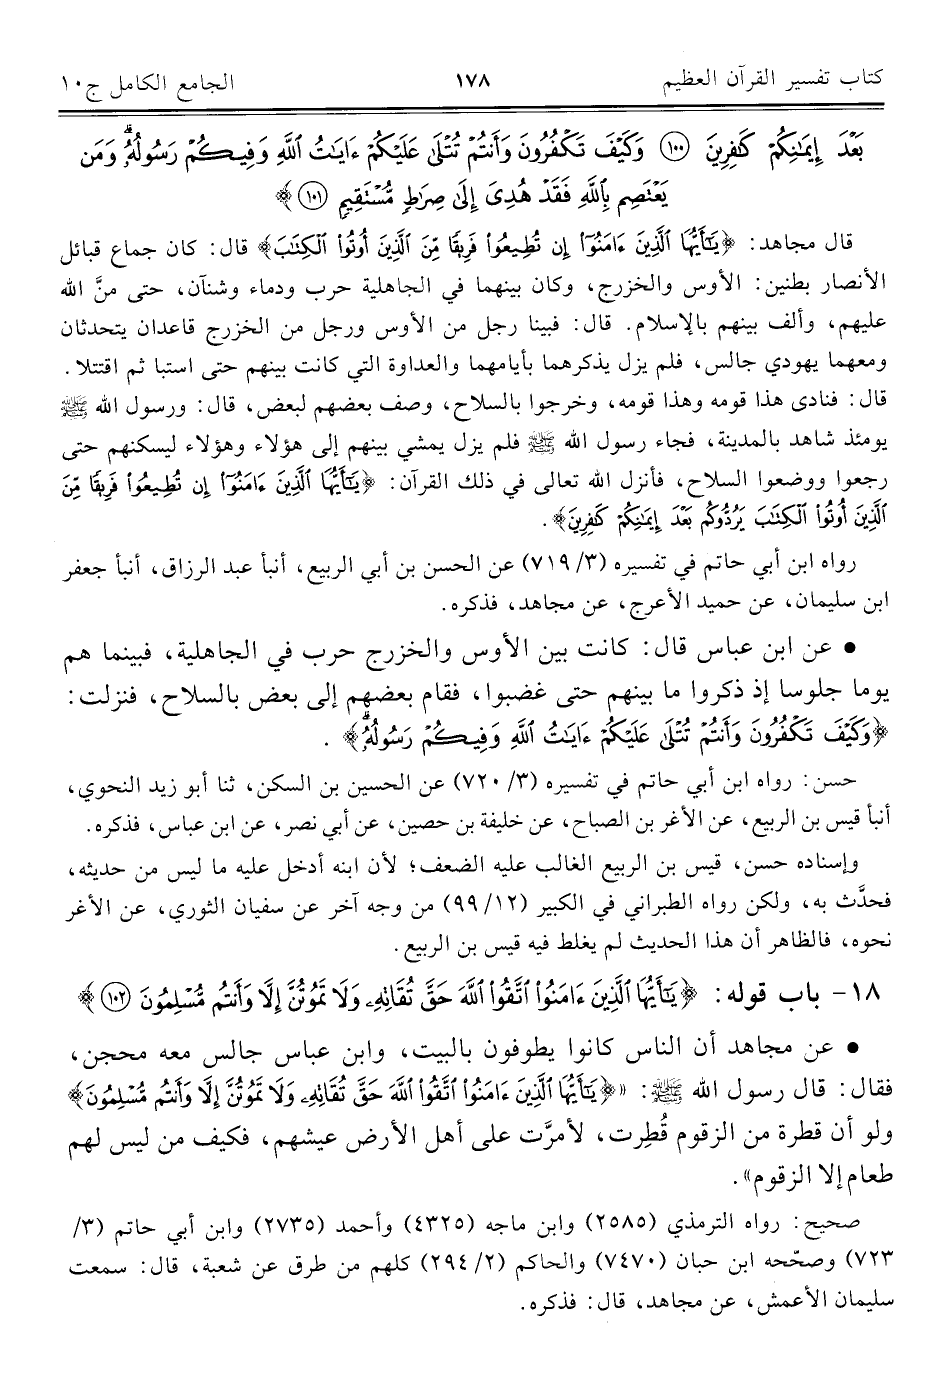 كتاب تفسير القرآن العظيم ١٧٨ الجامع الكامل ج١٠
بَعْدَ إِيمَٰنِكُمْ كَٰفِرِينَ ١٠٠ وَكَيْفَ تَكْفُرُونَ وَأَنتُمْ تُتْلَىٰ عَلَيْكُمْ ءَايَٰتُ ٱللَّهِ وَفِيكُمْ رَسُولُهُۥۗ وَمَن
يَعْتَصِم بِٱللَّهِ فَقَدْ هُدِىَ إِلَىٰ صِرَٰطٍ مُّسْتَقِيمٍ ١٠١ ﴾
قال مجاهد: ﴿يَٰٓأَيُّهَا ٱلَّذِينَ ءَامَنُوٓا۟ إِن تُطِيعُوا۟ فَرِيقًا مِّنَ ٱلَّذِينَ أُوتُوا۟ ٱلْكِتَٰبَ﴾ قال: كان جماع قبائل
الأنصار بطنين: الأوس والخزرج، وكان بينهما في الجاهلية حرب ودماء وشنآن، حتى منَّ الله
عليهم، وألف بينهم بالإسلام. قال: فبينا رجل من الأوس ورجل من الخزرج قاعدان يتحدثان
ومعهما يهودي جالس، فلم يزل يذكرهما بأيامهما والعداوة التي كانت بينهم حتى استبا ثم اقتتلا.
قال: فنادى هذا قومه وهذا قومه، وخرجوا بالسلاح، وصف بعضهم لبعض، قال: ورسول الله ﷺ
يومئذ شاهد بالمدينة، فجاء رسول الله ﷺ فلم يزل يمشي بينهم إلى هؤلاء وهؤلاء ليسكنهم حتى
رجعوا ووضعوا السلاح، فأنزل الله تعالى في ذلك القرآن: ﴿يَٰٓأَيُّهَا ٱلَّذِينَ ءَامَنُوٓا۟ إِن تُطِيعُوا۟ فَرِيقًا مِّنَ
ٱلَّذِينَ أُوتُوا۟ ٱلْكِتَٰبَ يَرُدُّوكُم بَعْدَ إِيمَٰنِكُمْ كَٰفِرِينَ﴾.
رواه ابن أبي حاتم في تفسيره (٣/ ٧١٩) عن الحسن بن أبي الربيع، أنبأ عبد الرزاق، أنبأ جعفر
ابن سليمان، عن حميد الأعرج، عن مجاهد، فذكره.
• عن ابن عباس قال: كانت بين الأوس والخزرج حرب في الجاهلية، فبينما هم
يوما جلوسا إذ ذكروا ما بينهم حتى غضبوا، فقام بعضهم إلى بعض بالسلاح، فنزلت:
﴿وَكَيْفَ تَكْفُرُونَ وَأَنتُمْ تُتْلَىٰ عَلَيْكُمْ ءَايَٰتُ ٱللَّهِ وَفِيكُمْ رَسُولُهُۥۗ﴾ .
حسن: رواه ابن أبي حاتم في تفسيره (٣/ ٧٢٠) عن الحسين بن السكن، ثنا أبو زيد النحوي،
أنبأ قيس بن الربيع، عن الأغر بن الصباح، عن خليفة بن حصين، عن أبي نصر، عن ابن عباس، فذكره.
وإسناده حسن، قيس بن الربيع الغالب عليه الضعف؛ لأن ابنه أدخل عليه ما ليس من حديثه،
فحدَّث به، ولكن رواه الطبراني في الكبير (١٢/ ٩٩) من وجه آخر عن سفيان الثوري، عن الأغر
نحوه، فالظاهر أن هذا الحديث لم يغلط فيه قيس بن الربيع.
١٨- باب قوله: ﴿يَٰٓأَيُّهَا ٱلَّذِينَ ءَامَنُوا۟ ٱتَّقُوا۟ ٱللَّهَ حَقَّ تُقَاتِهِۦ وَلَا تَمُوتُنَّ إِلَّا وَأَنتُم مُّسْلِمُونَ ١٠٢ ﴾
• عن مجاهد أن الناس كانوا يطوفون بالبيت، وابن عباس جالس معه محجن،
فقال: قال رسول الله ﷺ: «﴿يَٰٓأَيُّهَا ٱلَّذِينَ ءَامَنُوا۟ ٱتَّقُوا۟ ٱللَّهَ حَقَّ تُقَاتِهِۦ وَلَا تَمُوتُنَّ إِلَّا وَأَنتُم مُّسْلِمُونَ﴾
ولو أن قطرة من الزقوم قُطِرت، لأمرَّت على أهل الأرض عيشهم، فكيف من ليس لهم
طعام إلا الزقوم».
صحيح: رواه الترمذي (٢٥٨٥) وابن ماجه (٤٣٢٥) وأحمد (٢٧٣٥) وابن أبي حاتم (٣/
٧٢٣) وصحّحه ابن حبان (٧٤٧٠) والحاكم (٢/ ٢٩٤) كلهم من طرق عن شعبة، قال: سمعت
سليمان الأعمش، عن مجاهد، قال: فذكره.